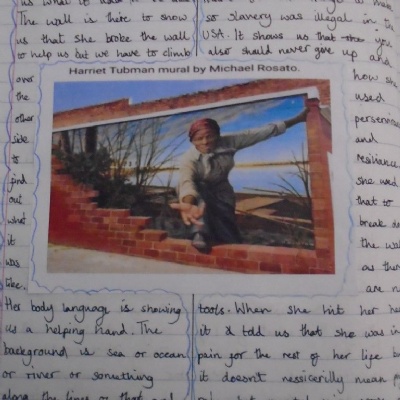 us what it
The wall is there to show
us that she broke the wall
to help us but we have to climb
over
the
other
side
to
find
out
what
it
was
like.
Harriet Tubman mural by Michael Rosato.
Her body language is showing
us a helping hand. The
background is sea or ocean
or river or something
along the lines of that and
so slavery was illegal in the
USA. It shows us that you
also should never give up and
how she
used
and
resiliance
she used
that to
break
the wall
as
are
tools. When she hit her
it told us that she was in
pain for the rest of her life
it doesn't nessicerilly mean